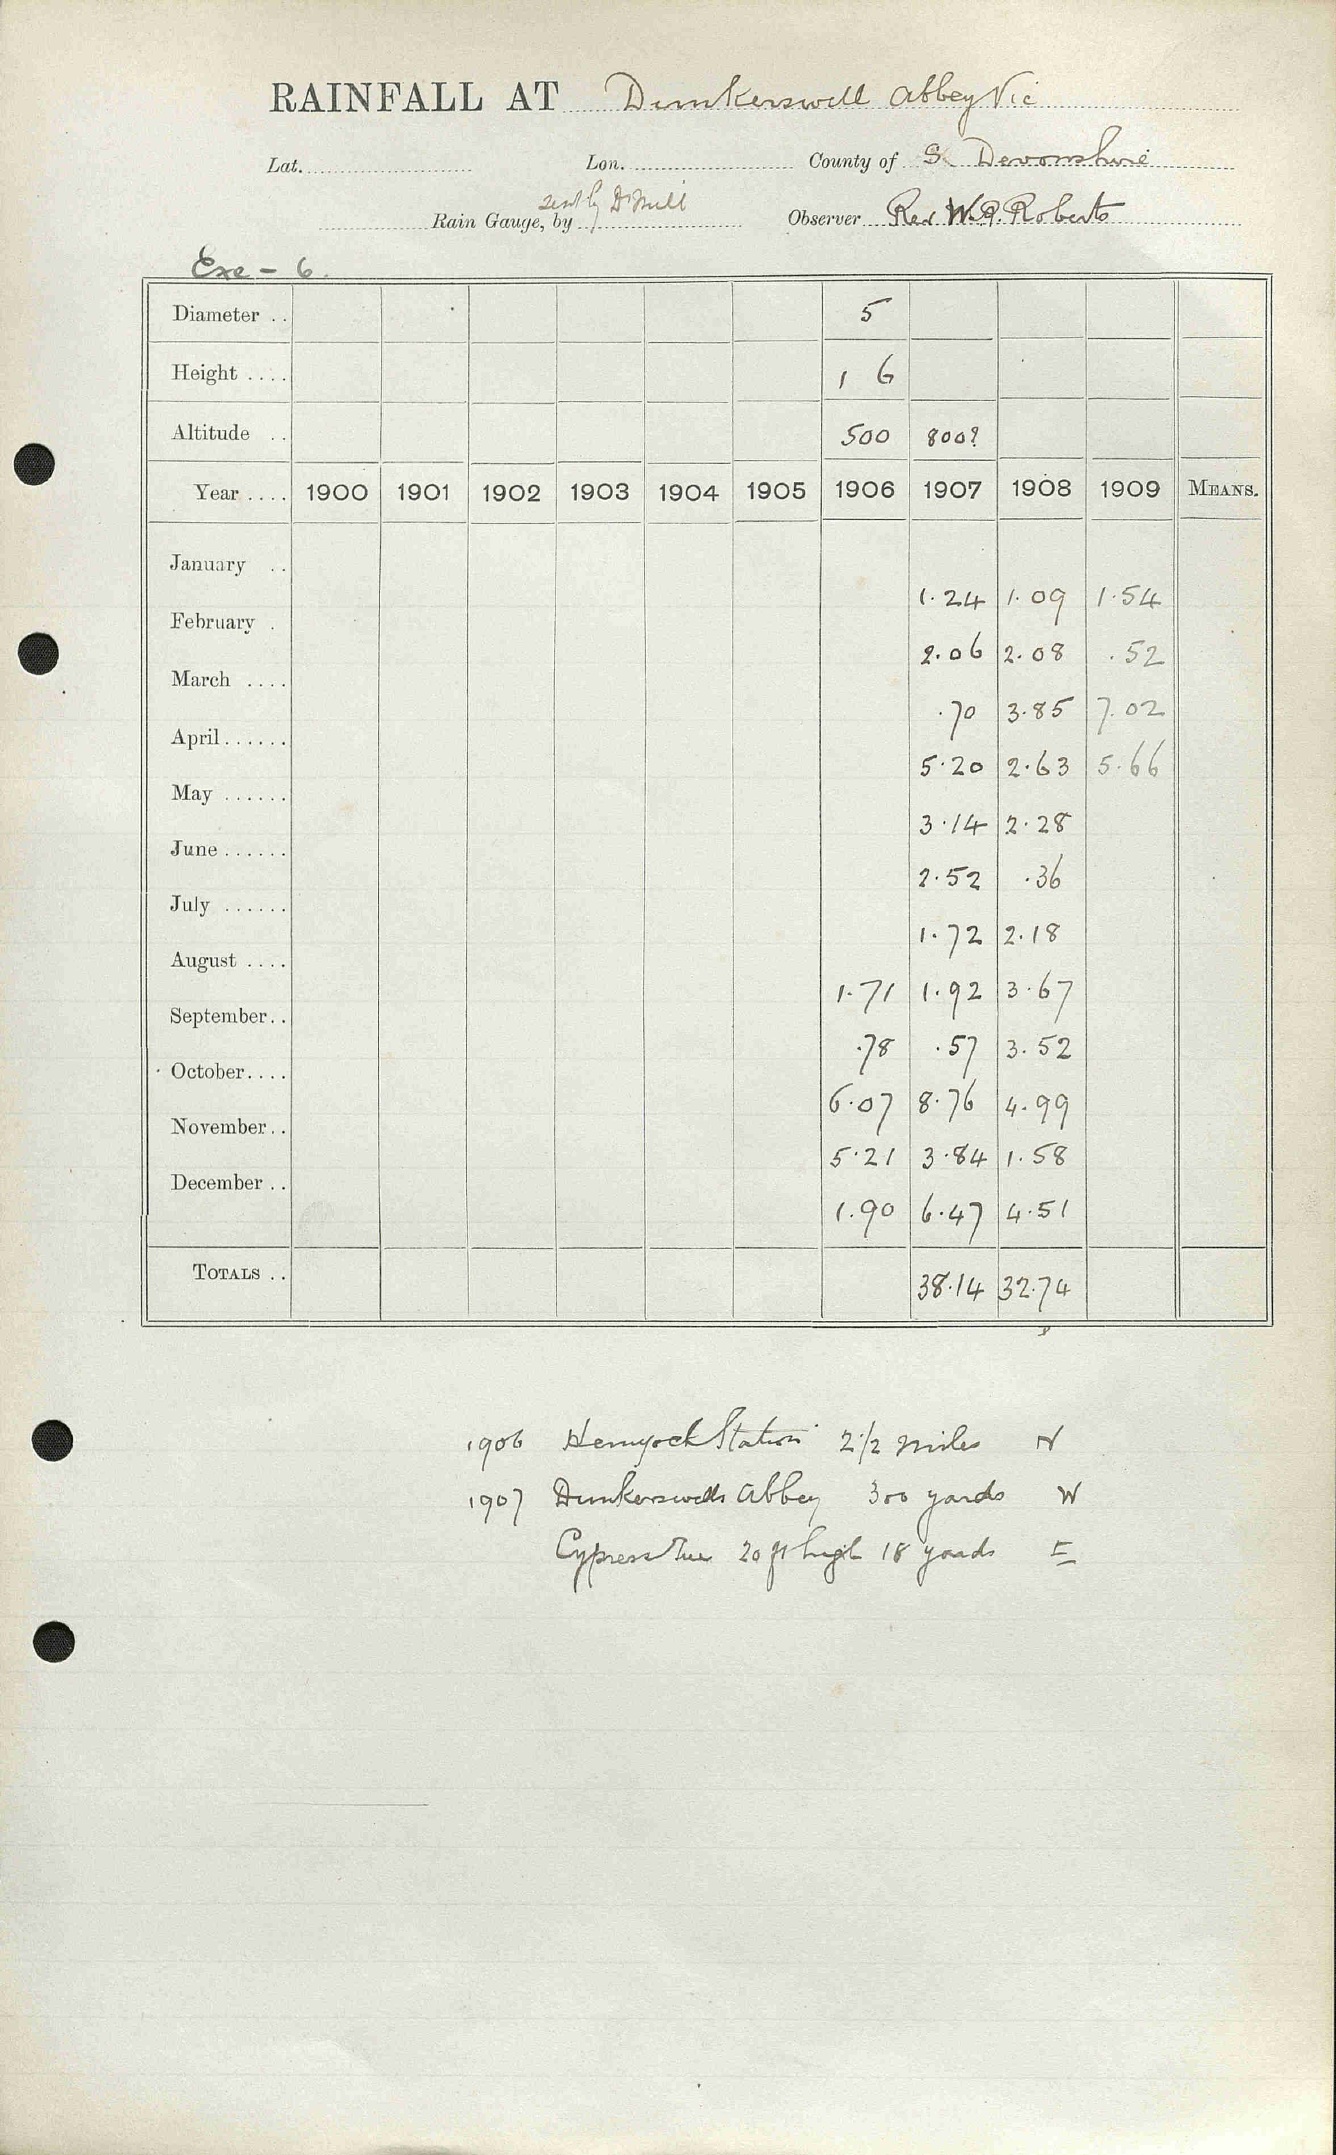 RAINFALL AT Dunkerswell Abbey Vic
Lat. Lon. County of S. Devonshire
sent by Dr Mill
Rain Gauge, by Observer Rev W.R. Roberts
Exe - 6.
Diameter .. 5
Height .... 1 6
Altitude .. 500 800?
Year .... 1900 1901 1902 1903 1904 1905 1906 1907 1908 1909 MEANS.
January ..
1.24 1.09 1.54
February .
2.06 2.08 .52
March ....
.70 3.85 7.02
April......
5.20 2.63 5.66
May ......
3.14 2.28
June ......
2.52 .36
July ......
1.72 2.18
August ....
1.71 1.92 3.67
September..
.78 .57 3.52
October....
6.07 8.76 4.99
November..
5.21 3.84 1.58
December ..
1.90 6.47 4.51
TOTALS .. 38.14 32.74
1906 Hemyock Station 2 1/2 miles N
1907 Dunkerswells Abbey 300 yards W
Cypress Tree 20 ft high 18 yards E